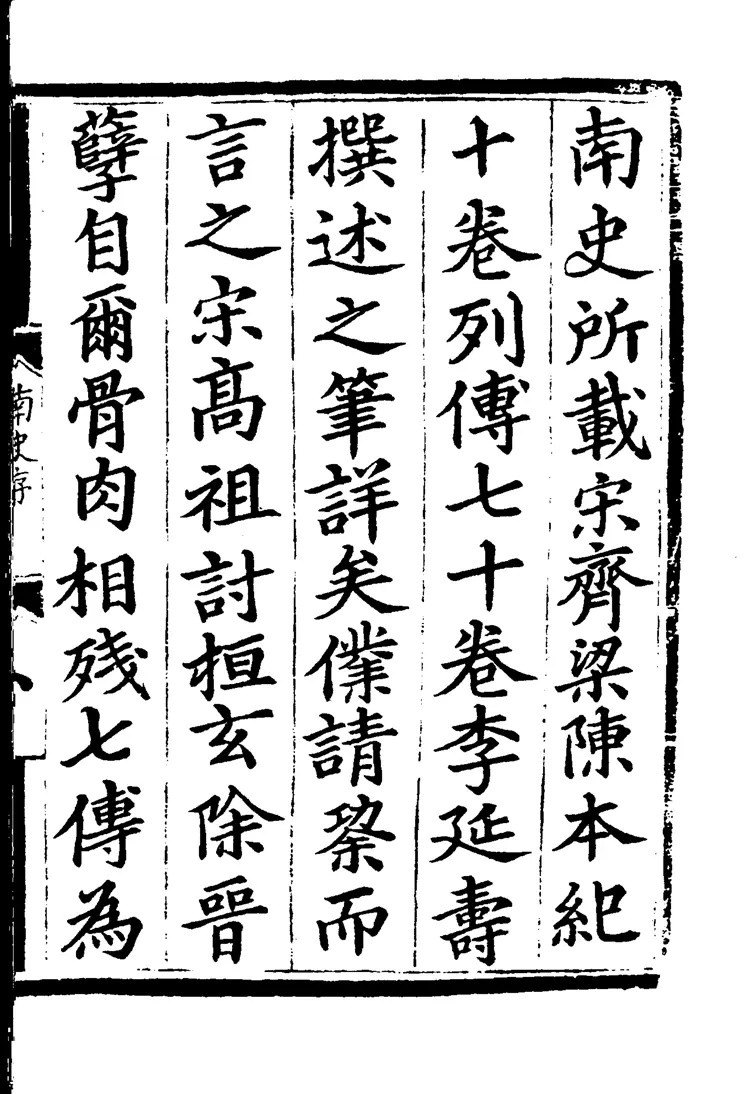 南史所載宋齊梁陳本紀
十卷列傳七十卷李延壽
撰述之筆詳矣僕請槩而
言之宋髙祖討桓玄除晉
孽自爾骨肉相殘七傳為
南史序